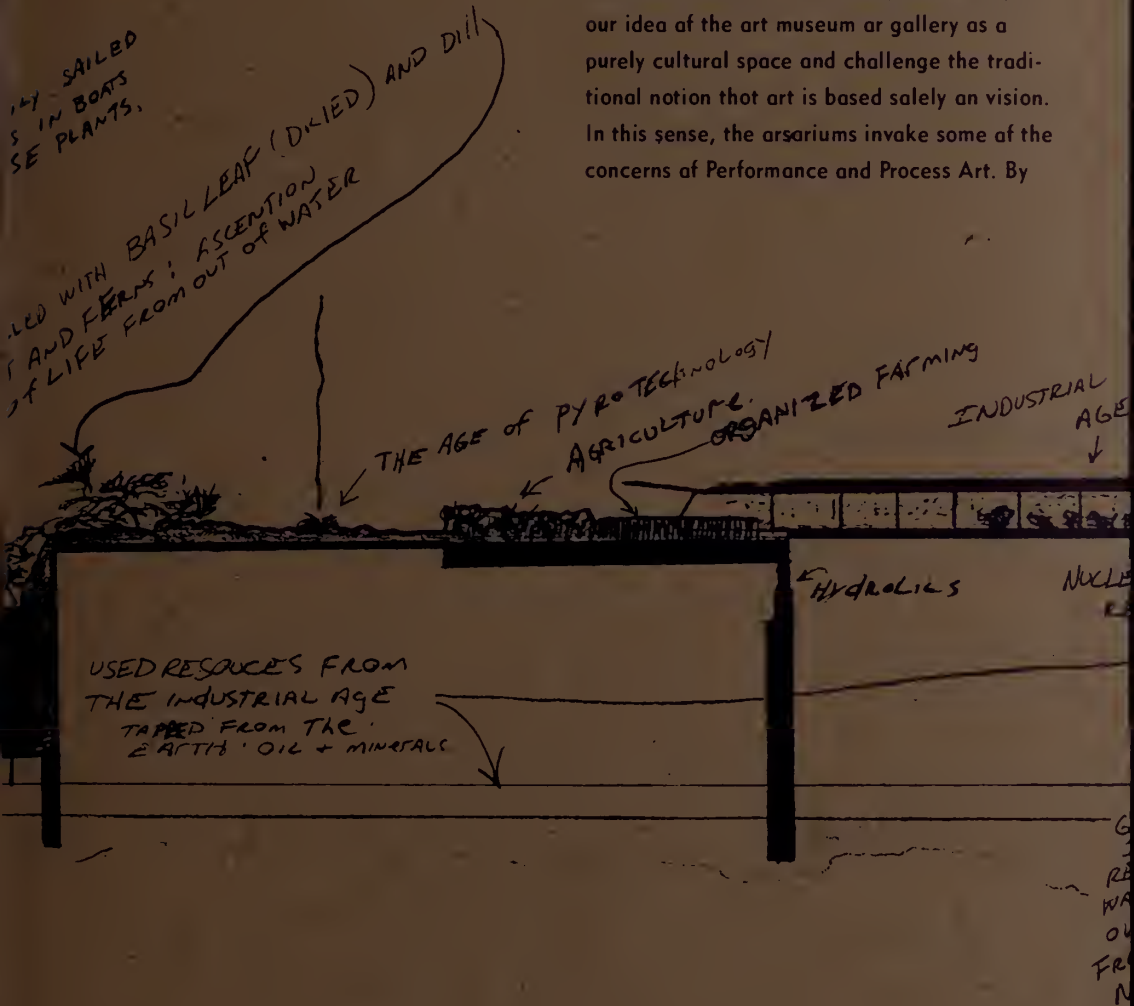 our idea af the art museum ar gallery as a
purely cultural space and challenge the tradi-
tional notion thot art is based salely an vision.
In this sense, the arsariums invake some af the
concerns af Performance and Pracess Art. By
SAILED
IN BOATS
PLANTS.
WITH BASIL LEAF (DRIED) AND Dill
AND FERNS: ASCENTION
of LIFE FROM OUT of WATER
THE AGE of PYROTECHNOLOGY
AGRICULTURE.
ORGANIZED FARMING
INDUSTRIAL
AGE
HYDROLICS
USED RESOUCES FROM
THE INDUSTRIAL AGE
TAPPED FROM THE
EARTH OIL + MINERALS